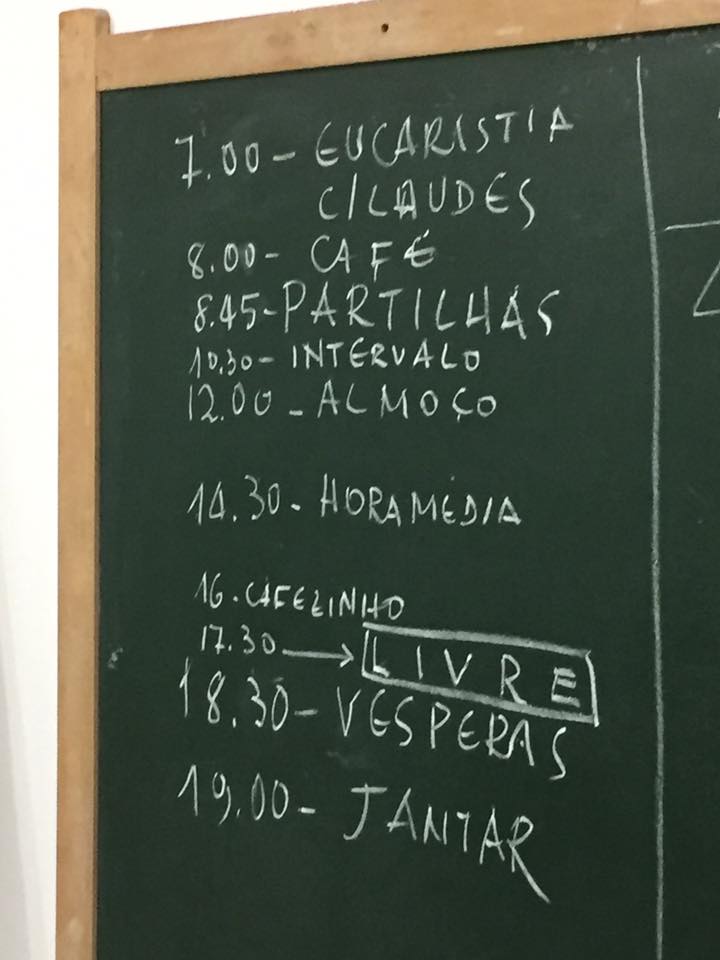 7.00 - EUCARISTIA
C/LAUDES
8.00 - CAFÉ
8.45 - PARTILHAS
10.30 - INTERVALO
12.00 - ALMOÇO
14.30 - HORA MÉDIA
16 - CAFEZINHO
17.30 → LIVRE
18.30 - VESPERAS
19.00 - JANTAR